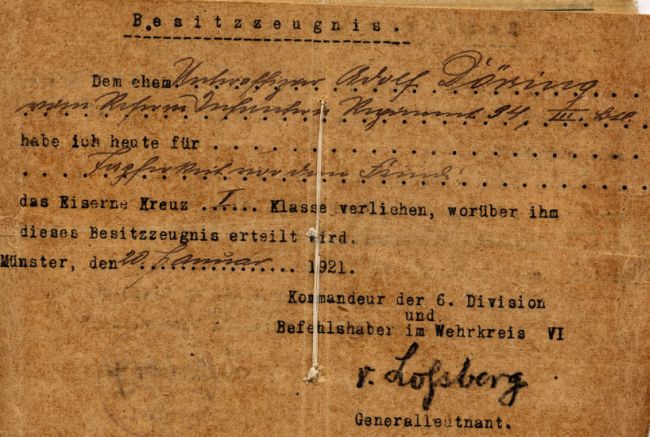 Besitzzeugnis.
Dem ehem Unteroffizier Adolf Döring
vom Reserve Infanterie Regiment 94, III. Btl.
habe ich heute für
Tapferkeit vor dem Feinde
das Eiserne Kreuz I. Klasse verliehen, worüber ihm
dieses Besitzzeugnis erteilt wird.
Münster, den 20. Januar 1921.
Kommandeur der 6. Division
und
Befehlshaber im Wehrkreis VI
v. Loßberg
Generalleutnant.